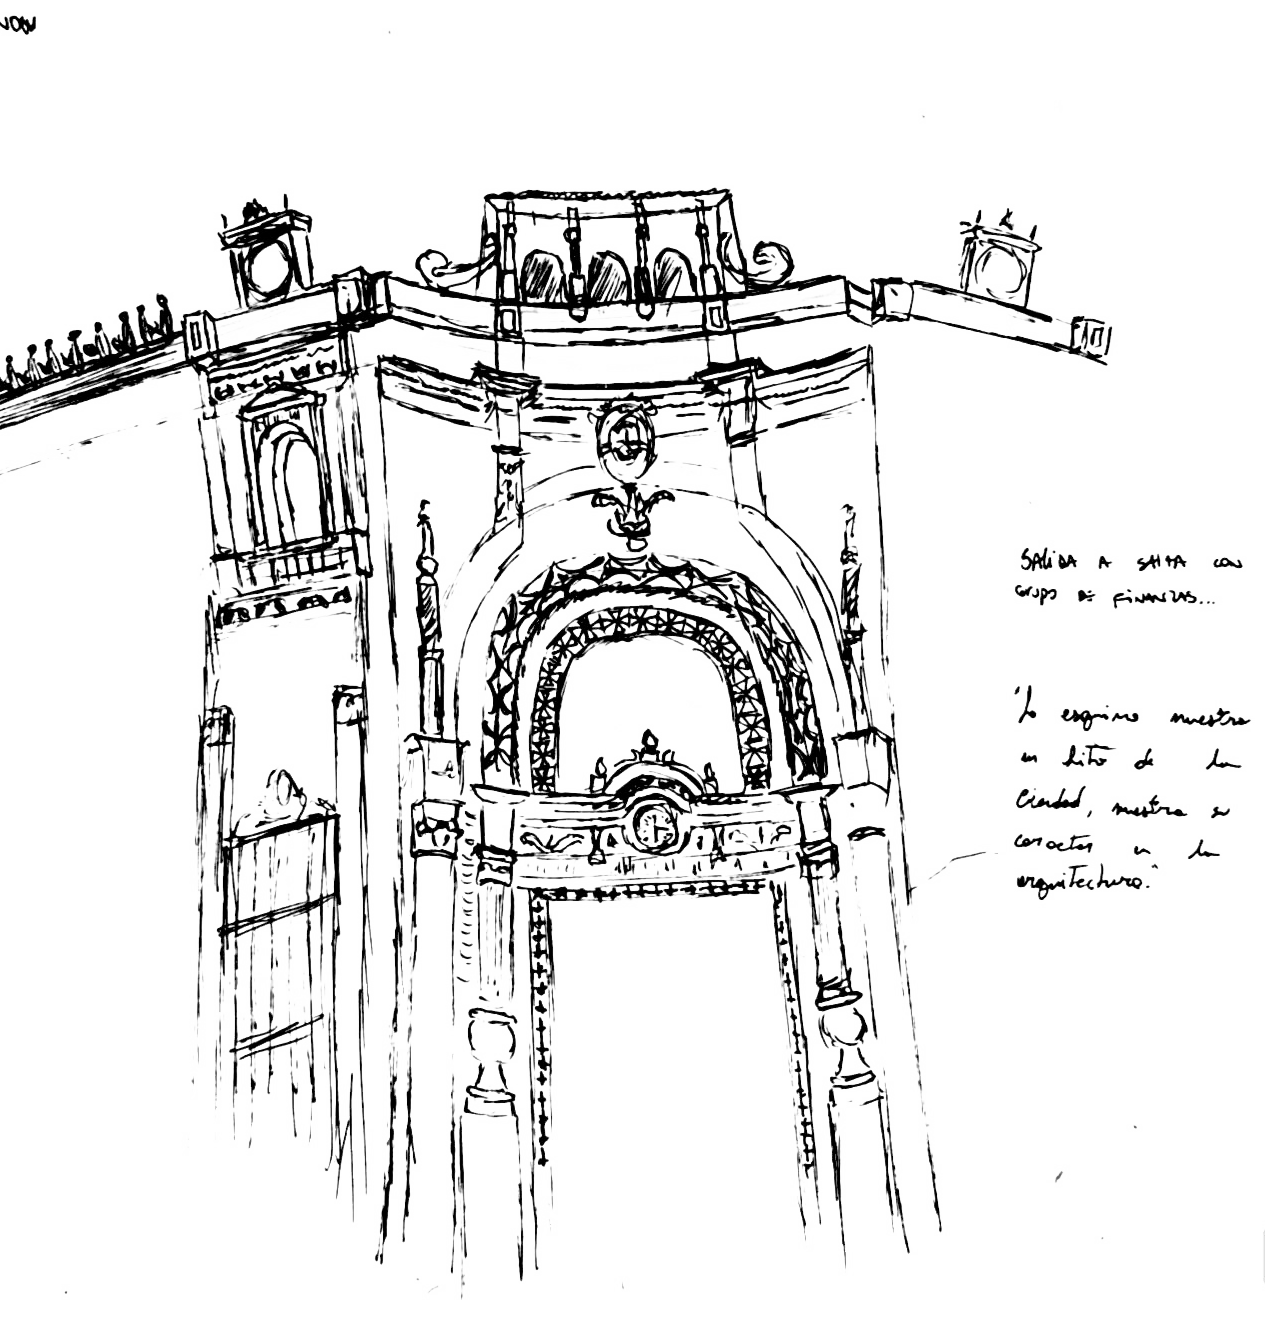 SALIDA A SALTA CON
GRUPO DE FINANZAS...
"La esquina muestra
un hito de la
Ciudad, muestra su
caracter en la
arquitectura."